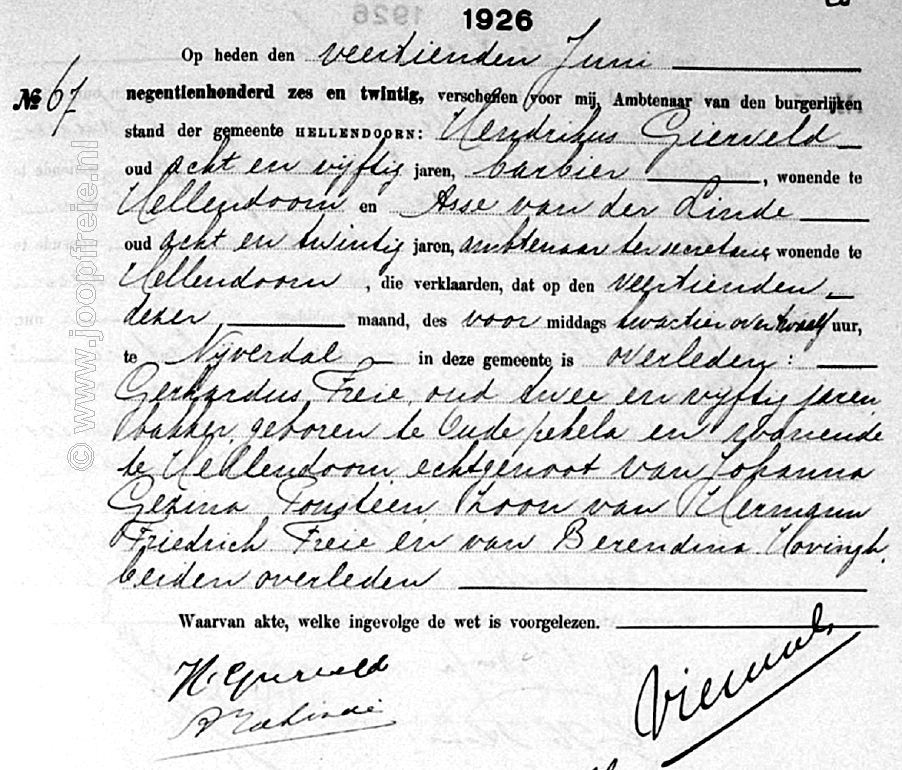 1926
Op heden den veertienden Juni
№ 67
negentienhonderd zes en twintig, verschenen voor mij, Ambtenaar van den burgerlijken
stand der gemeente HELLENDOORN: Hendrikus Gierveld
oud acht en vijftig jaren, barbier, wonende te
Hellendoorn en Asse van der Linde
oud acht en twintig jaren, ambtenaar ter secretarie, wonende te
Hellendoorn, die verklaarden, dat op den veertienden
dezer maand, des voor middags kwartier over twaalf uur,
te Nijverdal in deze gemeente is overleden:
Gerhardus Freie, oud twee en vijftig jaren
bakker, geboren te Oude pekela en wonende
te Hellendoorn echtgenoot van Johanna
Gezina Fonsteen zoon van Hermann
Friedrich Freie en van Berendina Hovingh,
beiden overleden
Waarvan akte, welke ingevolge de wet is voorgelezen.
H. Gierveld
© www.joopfreie.nl